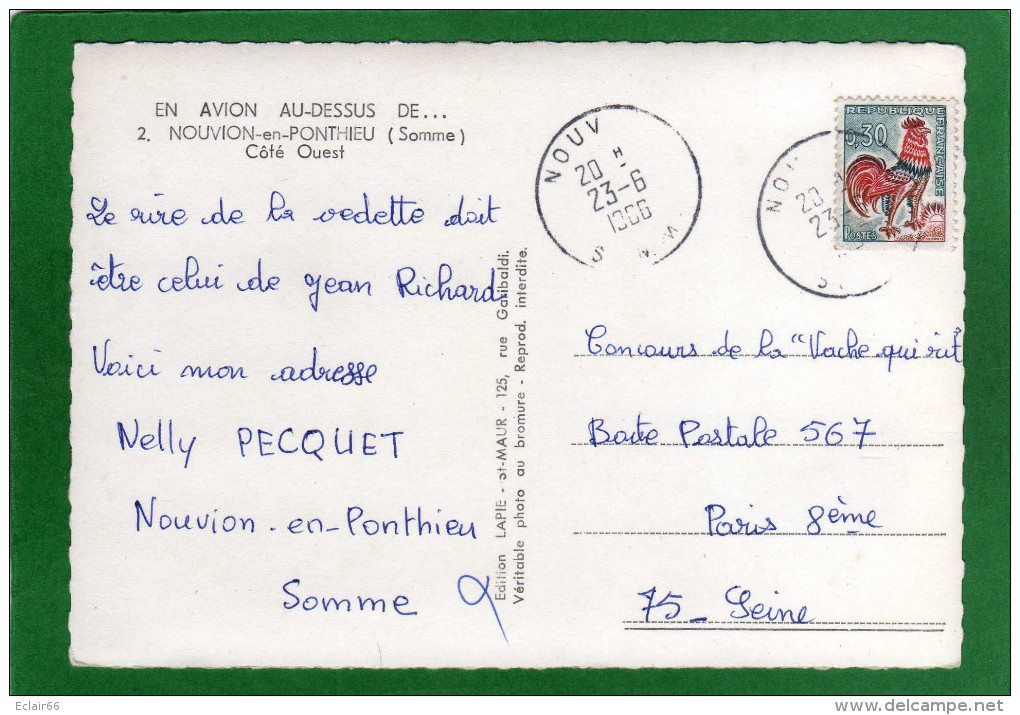 EN AVION AU-DESSUS DE...
2. NOUVION-en-PONTHIEU (Somme)
Côté Ouest
Le rire de la vedette doit
être celui de Jean Richard
Voici mon adresse
Nelly PECQUET
Nouvion-en-Ponthieu
Somme
Edition LAPIE - St-MAUR - 125, rue Garibaldi.
Véritable photo au bromure - Reprod. interdite.
NOUV
20 H
23-6
1966
S M M
NO
20
23
S
REPUBLIQUE FRANÇAISE
0,30
POSTES
Concours de la "Vache qui rit"
Boite Postale 567
Paris 8ème
75 - Seine
Eclair66